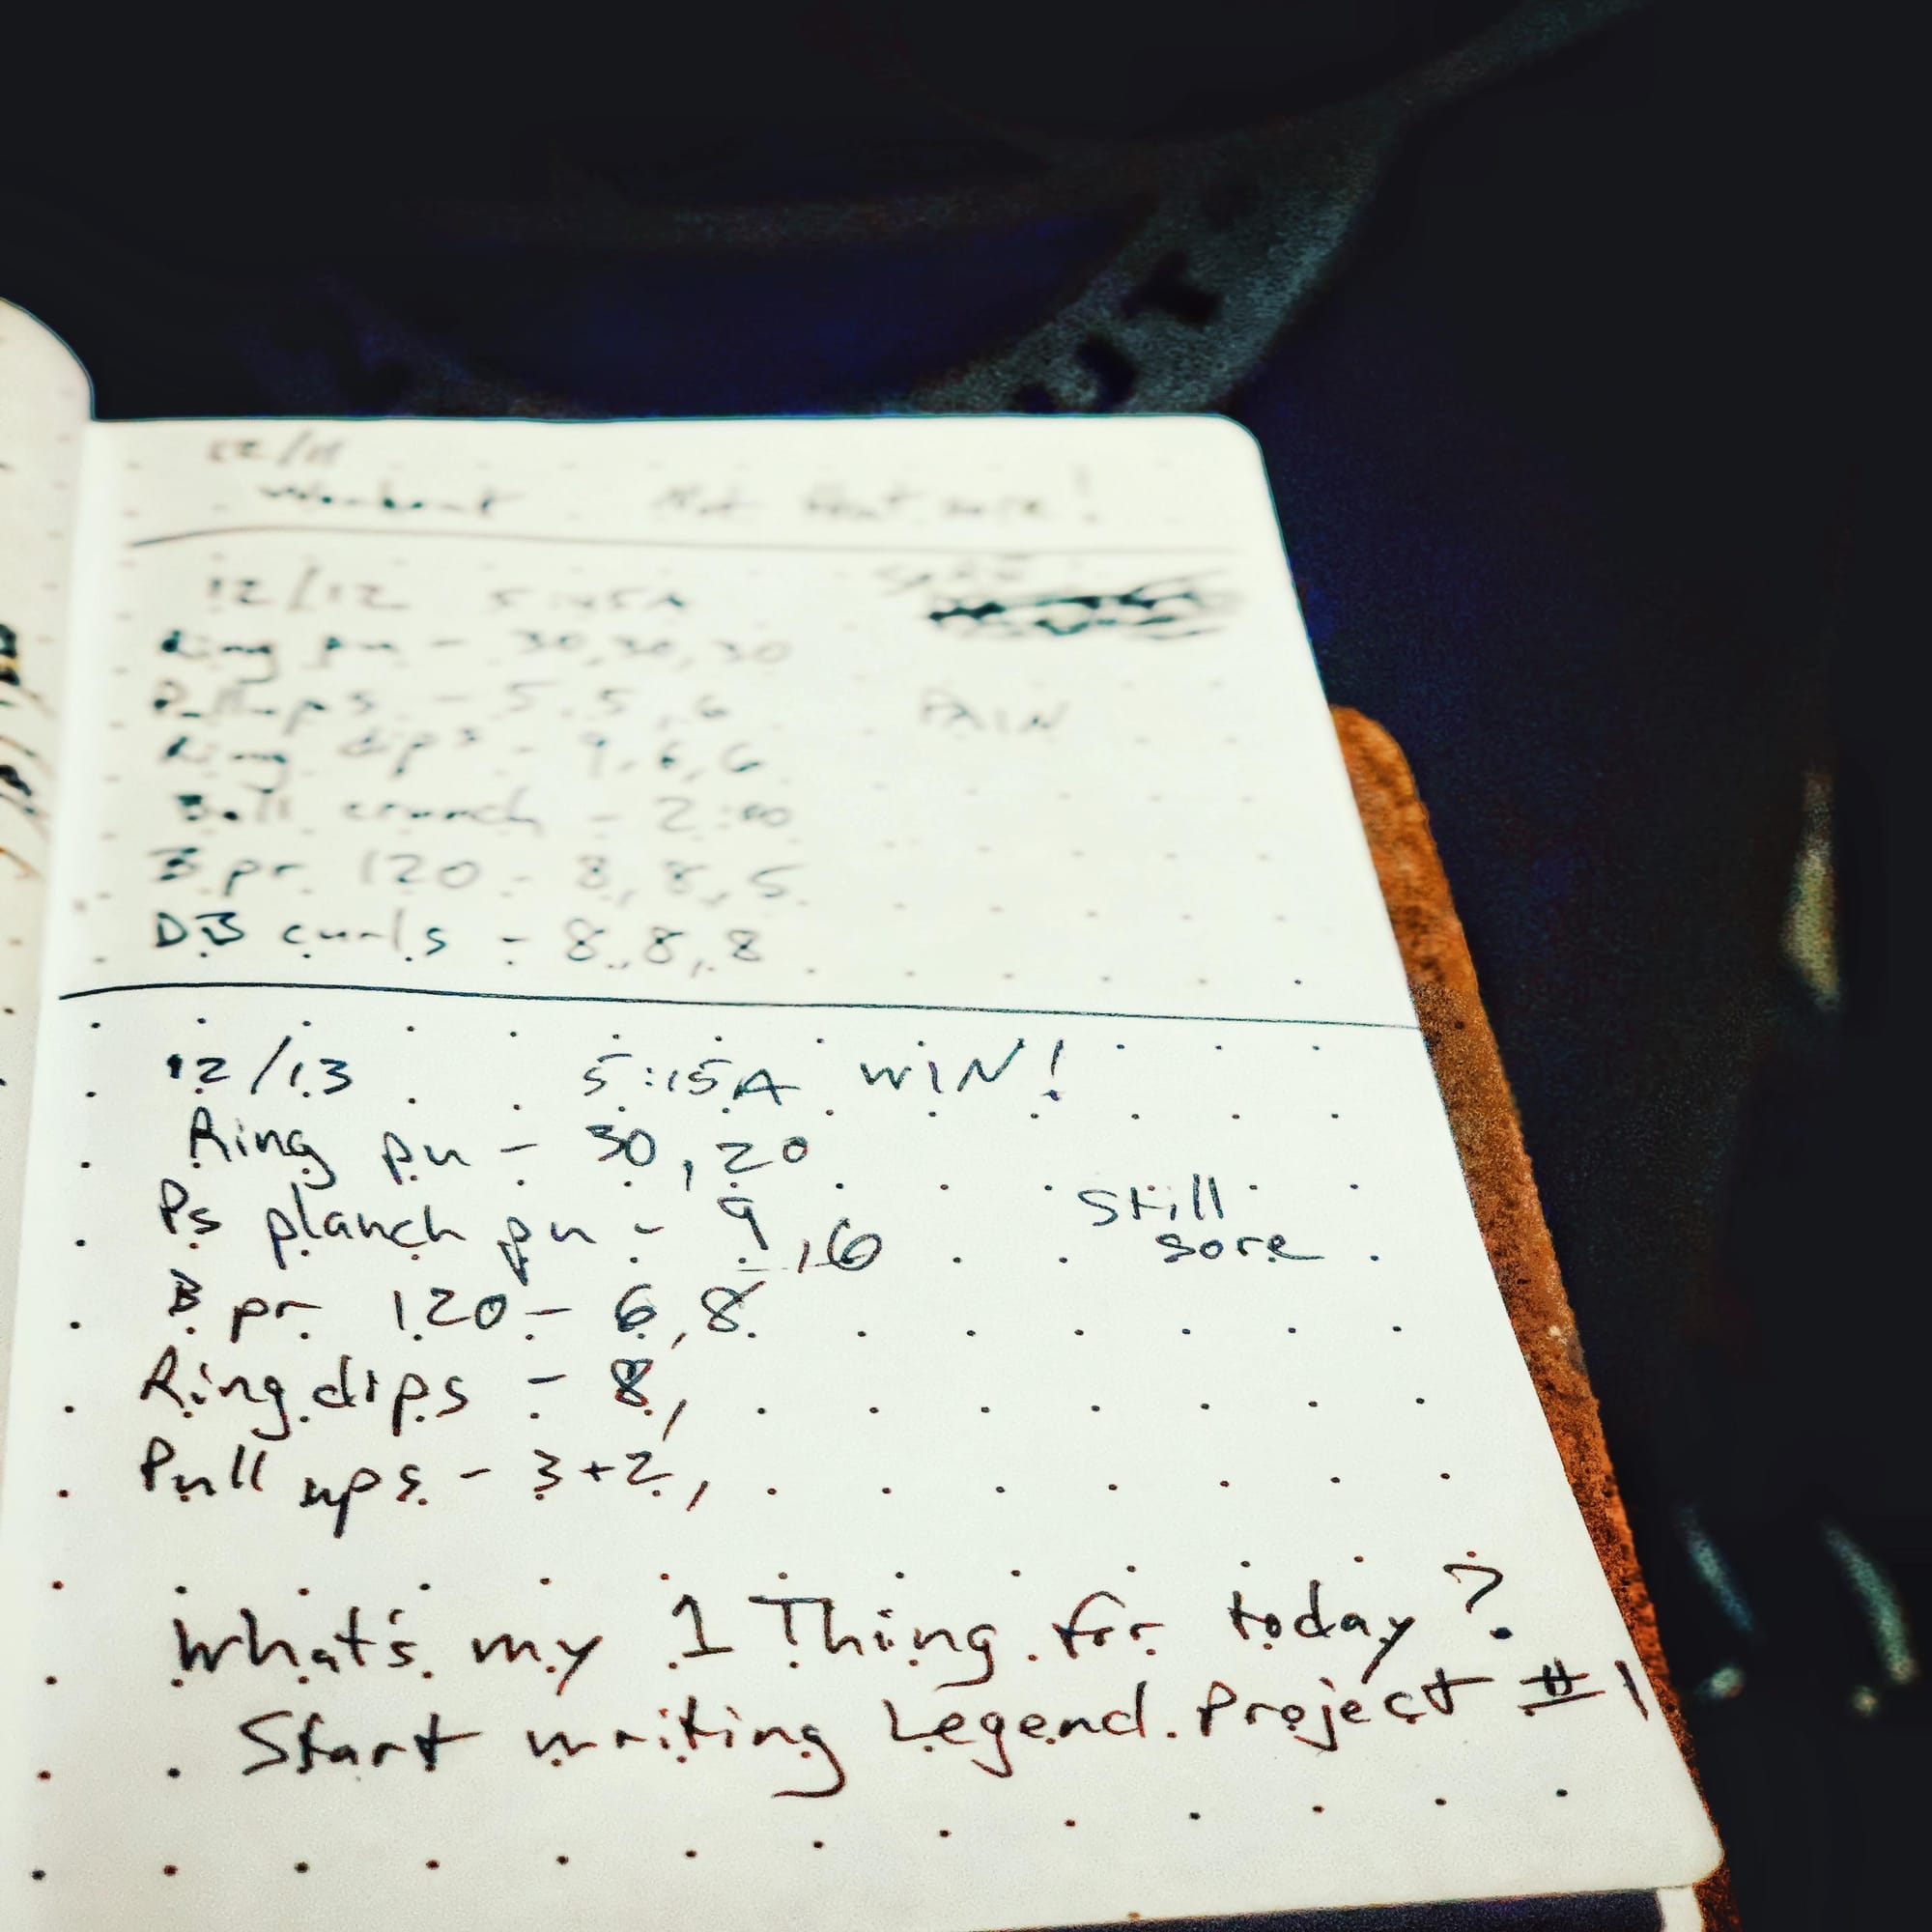 12/11
Workout Not that sore!
12/12 5:45A
Ring pu - 30, 30, 30
Pull ups - 5, 5, 6
PAIN
Ring dips - 9, 6, 6
Ball crunch - 2:00
B pr 120 - 8, 8, 5
DB curls - 8, 8, 8
12/13 5:15A WIN!
Ring pu - 30, 20
Ps planch pu - 9, 6
Still
sore
B pr 120 - 6, 8
Ring dips - 8,
Pull ups - 3+2,
What's my 1 Thing for today?
Start writing Legend Project #1